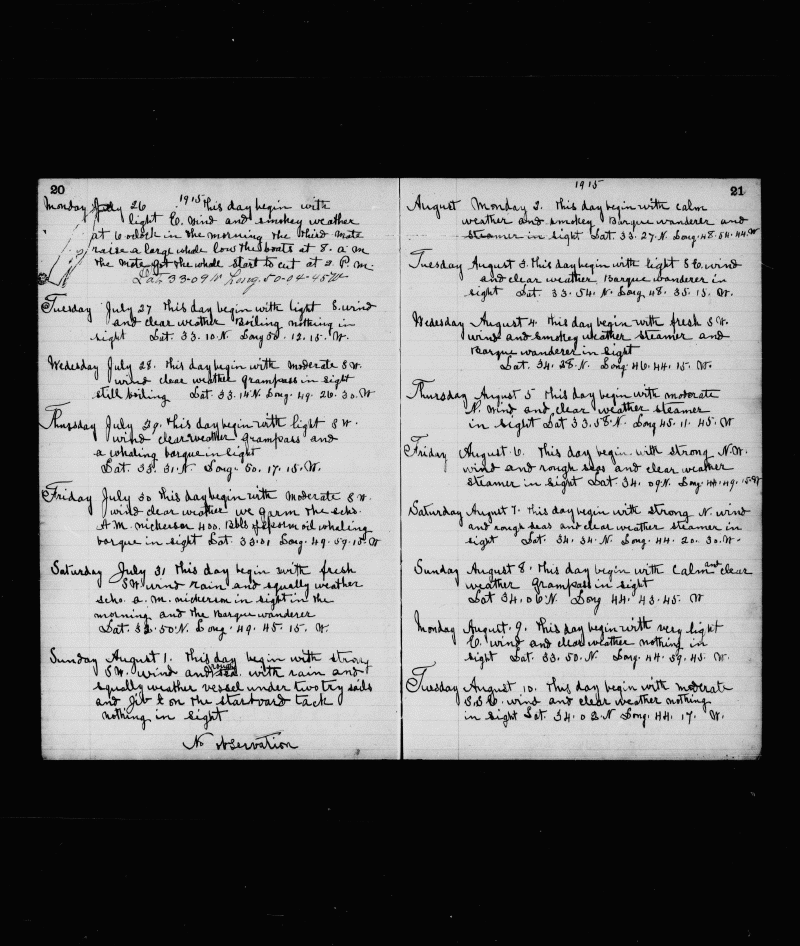 20
1915
Monday July 26 This day begin with
light E. wind and smokey weather
at 6 oclock in the morning the third mate
raise a large whale low the boats at 8. a m
the mate got the whale start to cut at 2. P. m.
Lat 33-09 N Long. 50-04-45 W
Tuesday July 27 This day begin with light S. wind
and clear weather Boiling nothing in
sight Lat. 33. 10. N. Long 50. 12. 15. W.
Wedesday July 28. This day begin with moderate S W.
wind clear weather grampass in sight
still boiling Lat. 33. 14 N. Long. 49. 26. 30. W
Thursday July 29. This day begin with light S W.
wind clear weather grampass and
a whaling barque in sight
Lat. 33. 31. N. Long. 50. 17. 15. W.
Friday July 30 This day begin with Moderate S W.
wind clear weather we garm the scho.
A. M. nickerson 400. Bbls of sperm oil whaling
barque in sight Lat. 33. 01 Long. 49. 59. 15. W
Saturday July 31 This day begin with fresh
S W. wind rain and squally weather
scho. a. m. nickerson in sight in the
morning and the Barque wanderer
Lat. 32. 50. N. Long. 49. 45. 15. W.
Sunday August 1. This day begin with strong
S W. wind and rough sea. with rain and
squally weather vessel under two try sails
and jib & on the starboard tack
nothing in sight
No observation
1915
21
August Monday 2. This day begin with calm
weather and smokey Barque wanderer and
steamer in sight Lat. 33. 27. N. Long. 48. 54. 44. W
Tuesday August 3. This day begin with light S E. wind
and clear weather Barque wanderer in
sight Lat. 33. 54. N. Long 48. 35. 15. W.
Wedesday August 4. This day begin with fresh S W.
wind and smokey weather steamer and
Barque wanderer in sight
Lat. 34. 28. N. Long. 46. 44. 15. W.
Thursday August 5 This day begin with moderate
N. wind and clear weather steamer
in sight Lat 33. 58. N. Long 45. 11. 45. W
Friday August 6. This day begin with strong N. W.
wind and rough seas and clear weather
steamer in sight Lat 34. 09. N. Long. 44. 49. 15. W
Saturday August 7. This day begin with strong N. wind
and rough seas and clear weather steamer in
sight Lat. 34. 34. N. Long. 44. 20. 30. W.
Sunday August 8. This day begin with calm and clear
weather grampass in sight
Lat 34. 06. N. Long 44. 43. 45. W
Monday August. 9. This day begin with very light
E. wind and clear weather nothing in
sight Lat. 33. 50. N. Long. 44. 59. 45. W.
Tuesday August 10. This day begin with moderate
S. S. E. wind and clear weather nothing
in sight Lat. 34. 02. N Long. 44. 17. W.